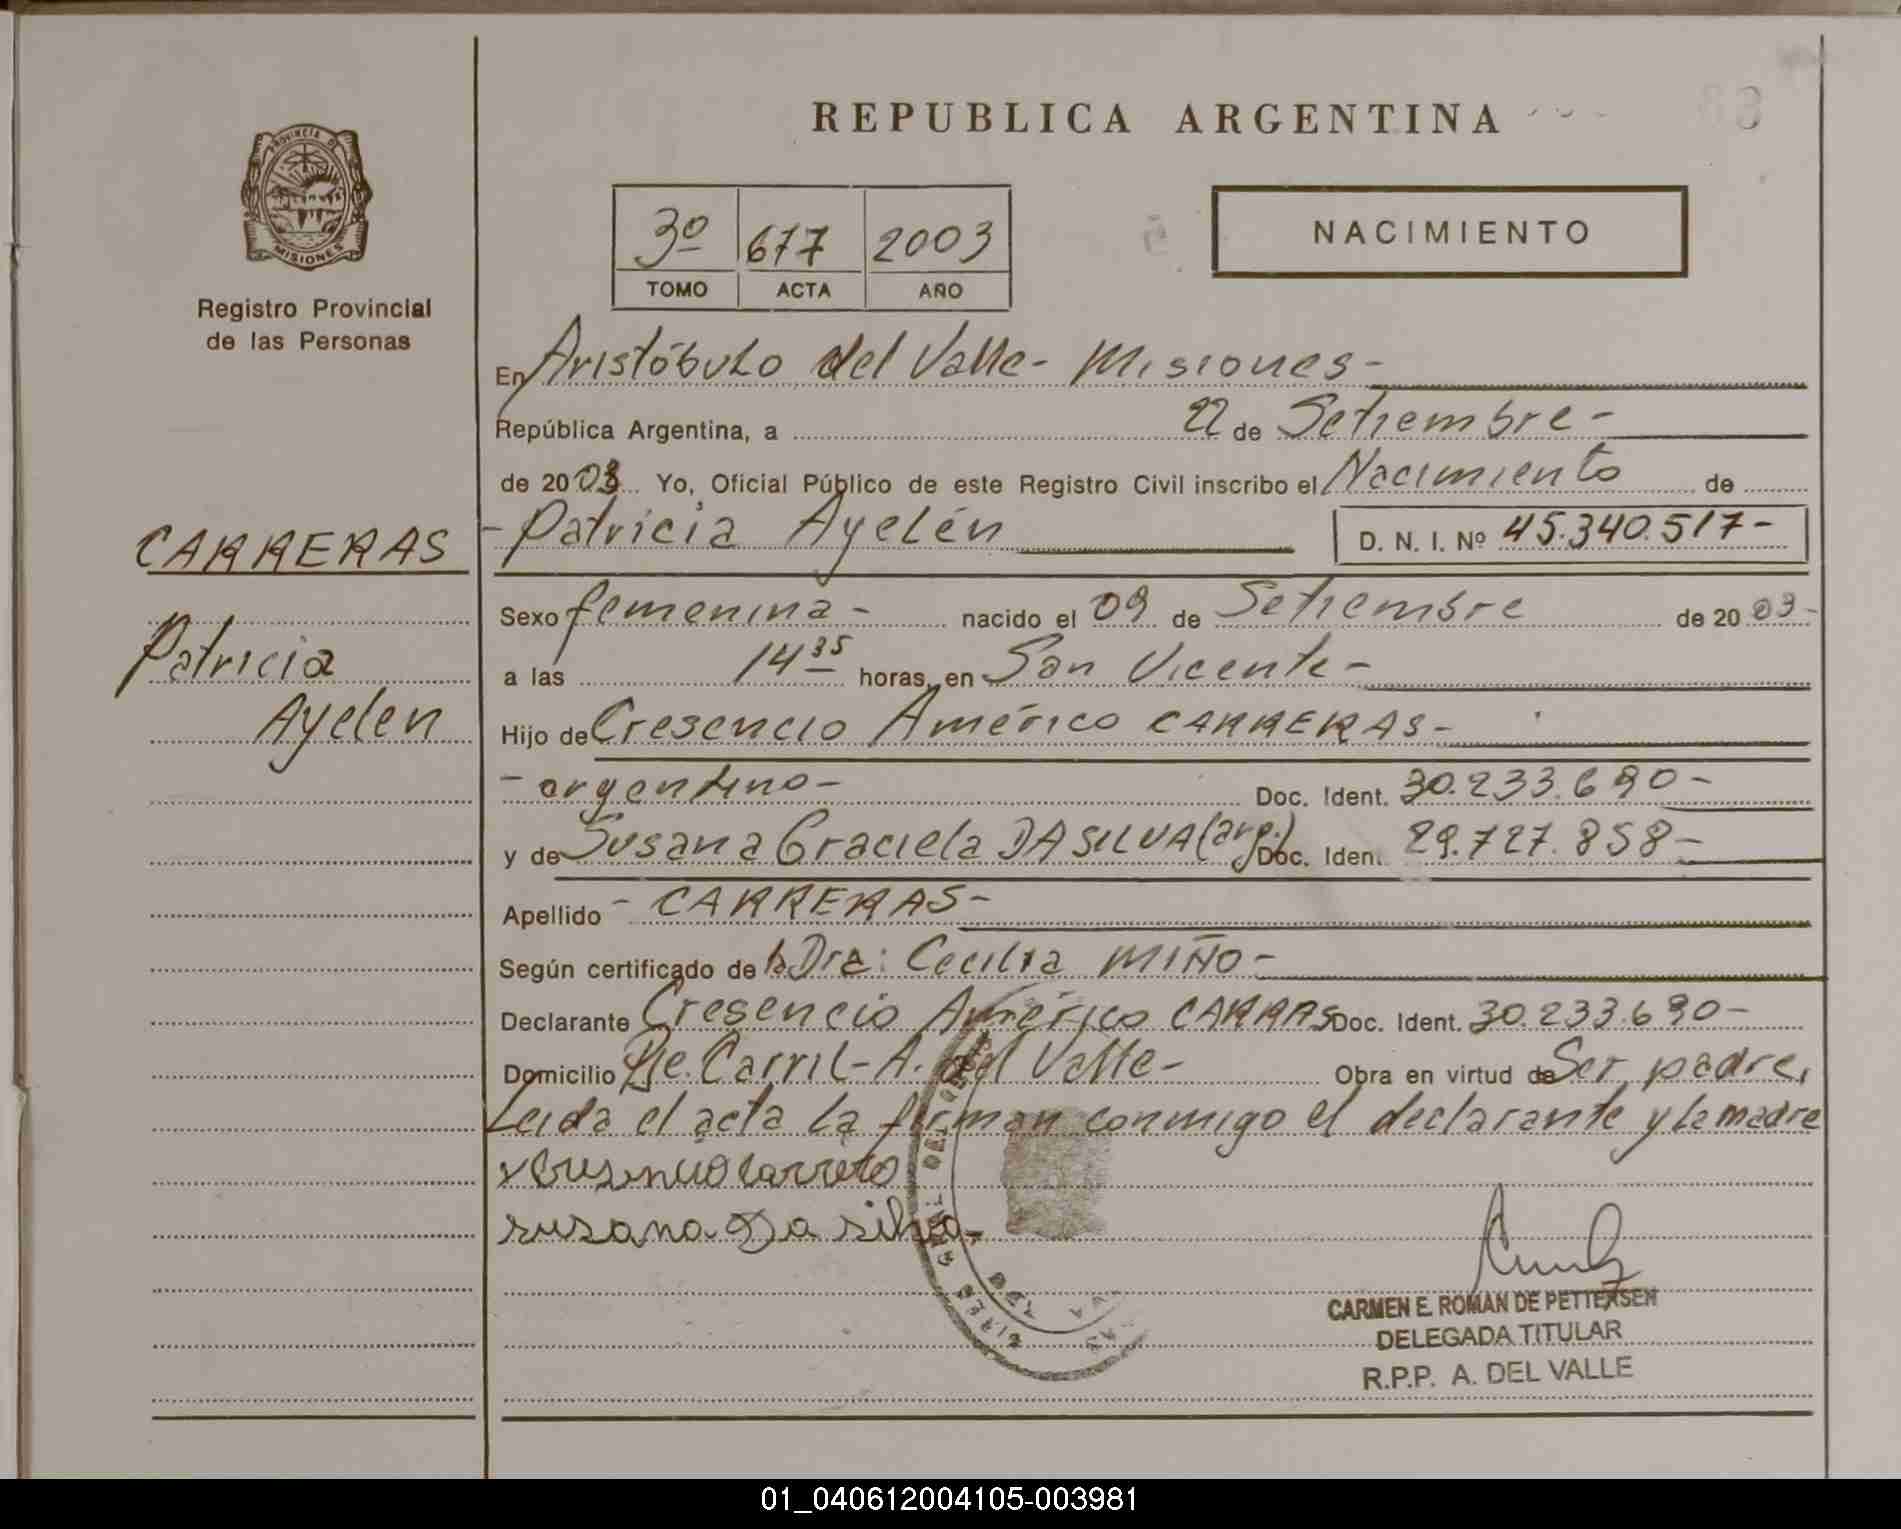 REPUBLICA ARGENTINA
PROVINCIA DE
MISIONES
Registro Provincial
de las Personas
3º 677 2003
TOMO ACTA AÑO
NACIMIENTO
En Aristóbulo del Valle - Misiones -
República Argentina, a 22 de Setiembre -
de 2003 Yo, Oficial Público de este Registro Civil inscribo el Nacimiento de
CARRERAS
- Patricia Ayelén D. N. I. Nº 45.340.517 -
Sexo femenina - nacido el 09 de Setiembre de 2003 -
Patricia
a las 14 35 horas, en San Vicente -
Ayelen
Hijo de Cresencio Américo CARRERAS -
- argentino - Doc. Ident. 30.233.690 -
y de Susana Graciela DA SILVA (arg.) Doc. Iden. 29.727.858 -
Apellido - CARRERAS -
Según certificado de la Dra: Cecilia MIÑO -
Declarante Cresencio Américo CARRAS Doc. Ident. 30.233.690 -
Domicilio De. Carril - A. del Valle - Obra en virtud de Ser padre,
Leida el acta la firman conmigo el declarante y la madre
susana Da silva -
CARMEN E. ROMAN DE PETTERSEN
DELEGADA TITULAR
R.P.P. A. DEL VALLE
01_040612004105-003981